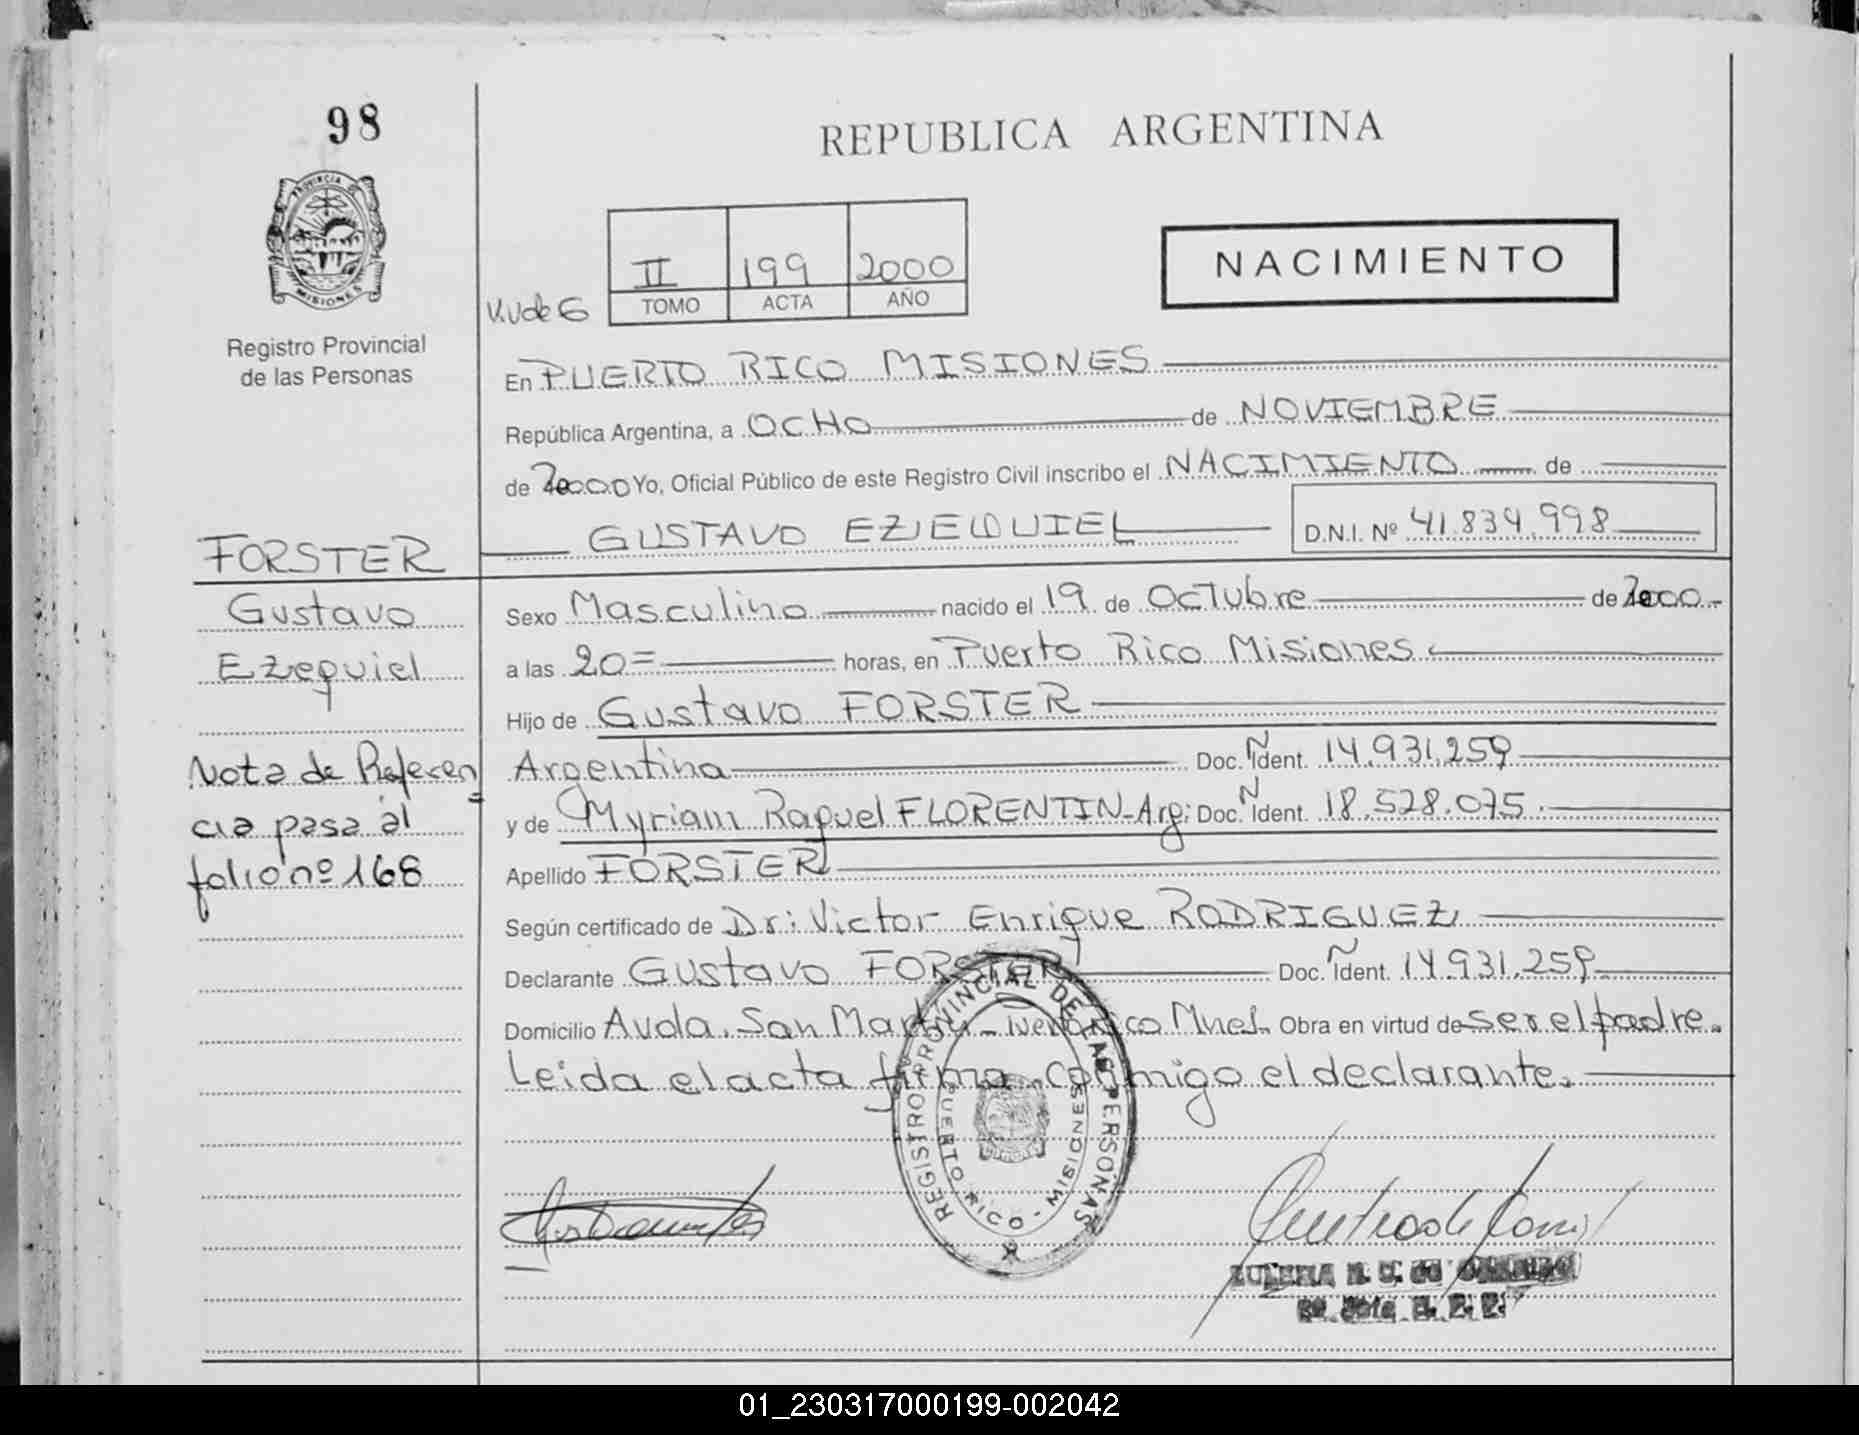 98
REPUBLICA ARGENTINA
PROVINCIA DE
MISIONES
Registro Provincial
de las Personas
II 199 2000
TOMO ACTA AÑO
NACIMIENTO
En PUERTO RICO MISIONES
República Argentina, a OCHO de NOVIEMBRE
de 2000 Yo, Oficial Público de este Registro Civil inscribo el NACIMIENTO de
GUSTAVO EZIEQUIEL D.N.I. Nº 41.834.998
FORSTER
Gustavo
Ezequiel
Sexo Masculino nacido el 19 de Octubre de 2000
a las 20= horas, en Puerto Rico Misiones
Hijo de Gustavo FORSTER
Argentina Doc. Ñ Ident. 14.931.259
y de Myriam Raquel FLORENTIN-Arg: Doc. N Ident. 18.528.075
Apellido FORSTER
Según certificado de Dr: Victor Enrique RODRIGUEZ
Declarante Gustavo FORSTER Doc. Ñ Ident. 14.931.259
Domicilio Avda. San Martin - Puerto Rico Mnes. Obra en virtud de ser el padre.
Leida el acta firma conmigo el declarante.
Nota de Referen
cia pasa al
folio nº 168
REGISTRO PROVINCIAL DE LAS PERSONAS
PUERTO RICO - MISIONES
01_230317000199-002042